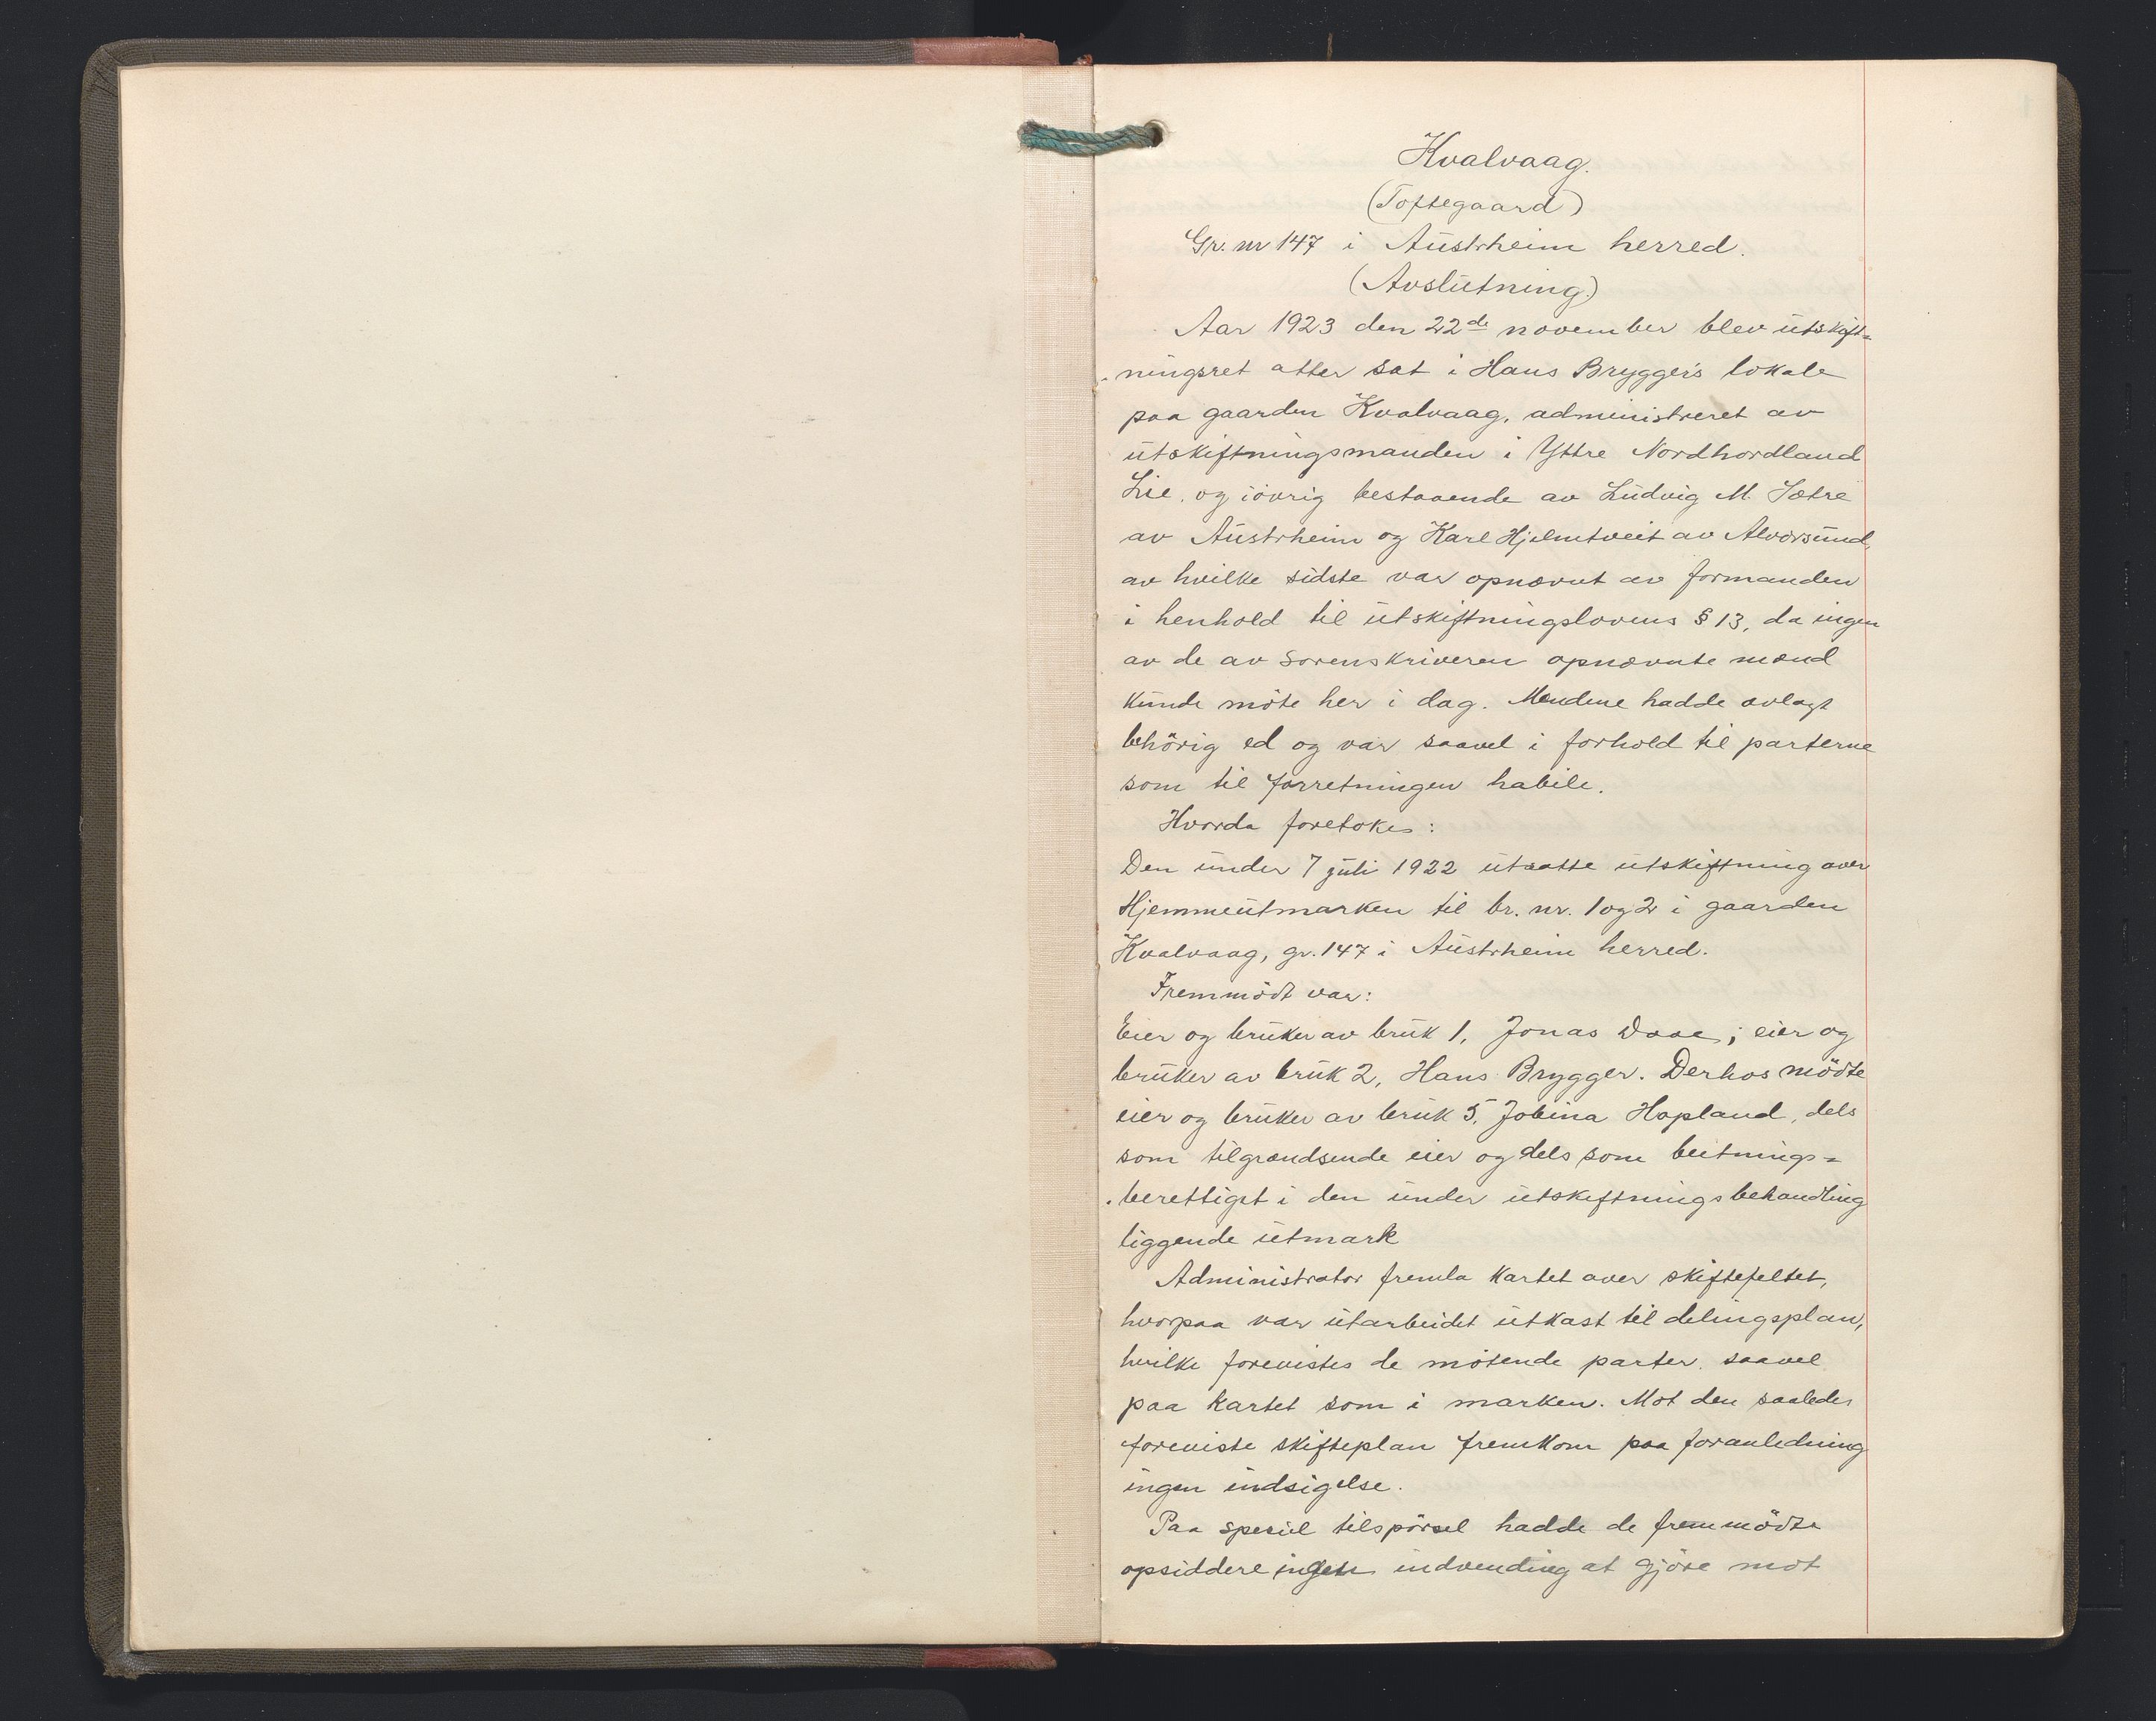 Kvalvaag.
(Toftegaard)
Gr. nr 147 i Austrheim herred.
(Avslutning)
Aar 1923 den 22de november blev utskift-
ningsret atter sat i Hans Brygger's lokale
paa gaarden Kvalvaag, administreret av
utskiftningsmanden i Yttre Nordhordland
Lie, og iövrig bestaaende av Ludvig M. Sætre
av Austrheim og Karl Hjelmtveit av Alversund,
av hvilke sidste var opnævnt av formanden
i henhold til utskiftningslovens § 13, da ingen
av de av sorenskriveren opnævnte mænd
kunde möte her i dag. Mændene hadde avlagt
behörig ed og var saavel i forhold til parterne
som til forretningen habile.
Hvorda foretokes:
Den under 7 juli 1922 utsatte utskiftning over
Hjemmeutmarken til br. nr. 1 og 2 i gaarden
Kvalvaag, gr. 147 i Austrheim herred.
Fremmödt var:
Eier og bruker av bruk 1, Jonas Daae; eier og
bruker av bruk 2, Hans Brygger. Derhos mödte
eier og bruker av bruk 5, Jobina Hopland, dels
som tilgrændsende eier og dels som beitnings-
berettiget i den under utskiftningsbehandling
liggende utmark
Administrator fremla kartet over skiftefeltet,
hvorpaa var utarbeidet utkast til delingsplan,
hvilke forevistes de mötende parter saavel
paa kartet som i marken. Mot den saaledes
foreviste skifteplan fremkom paa foranledning
ingen indsigelse.
Paa spesiel tilspörsel hadde de fremmödte
opsiddere ingen indvending at gjöre mot